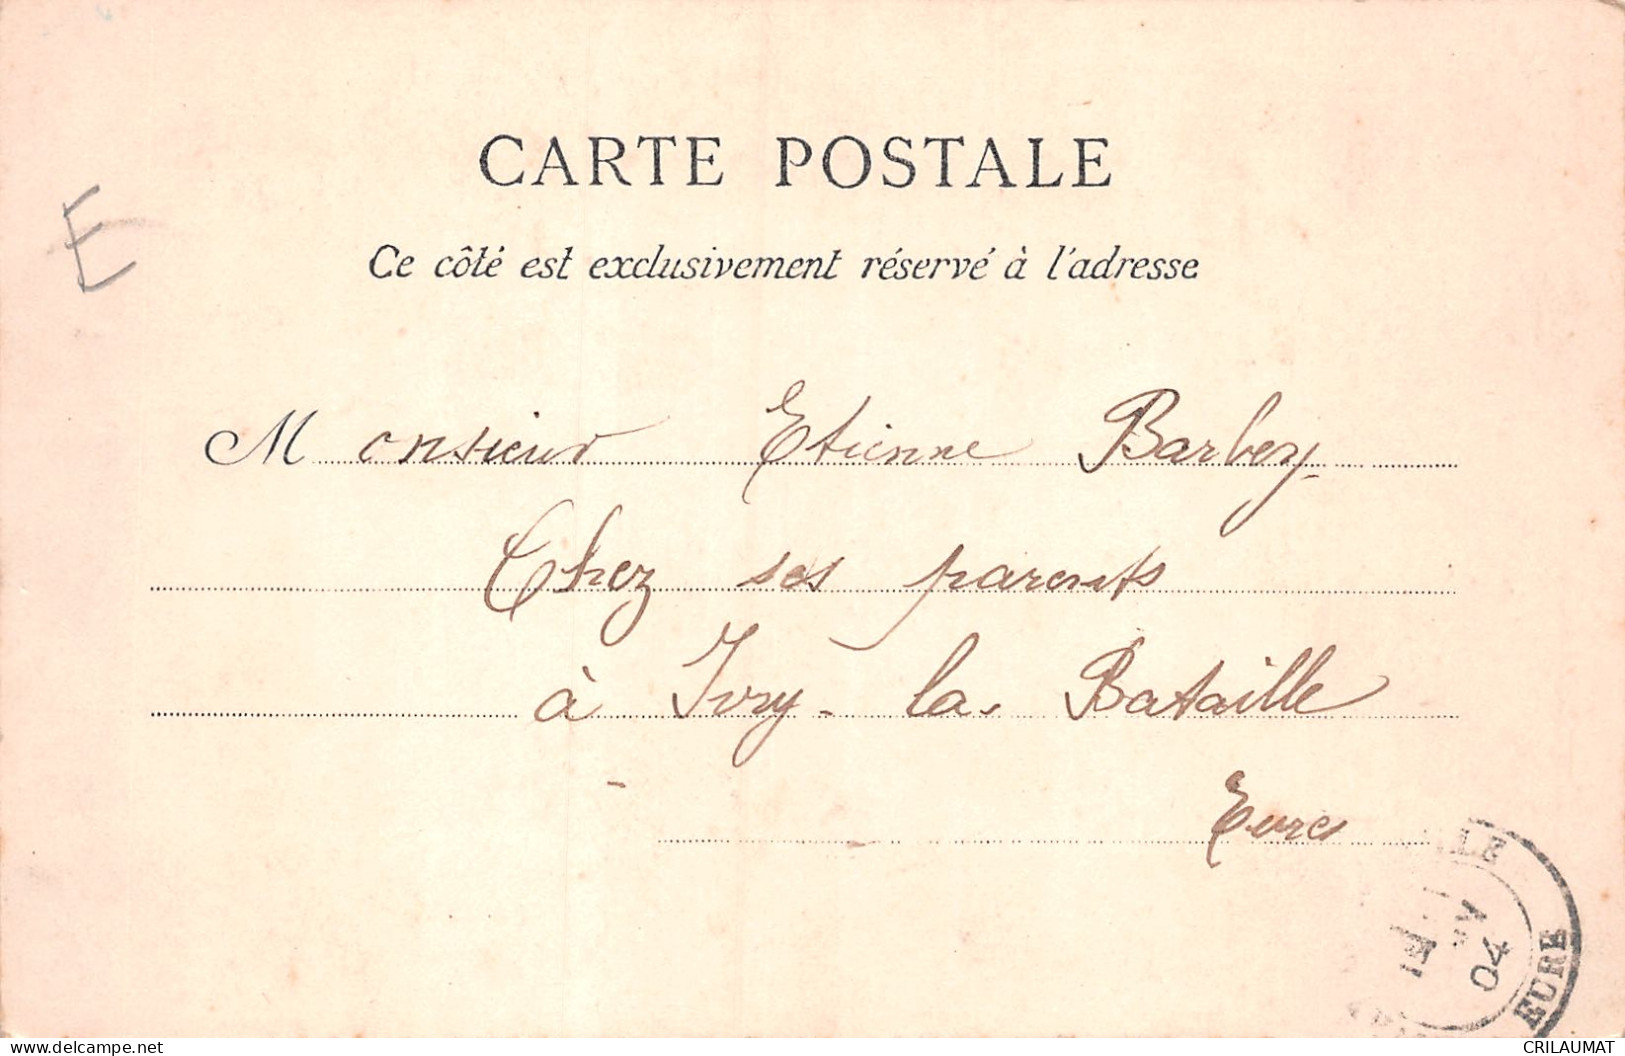 CARTE POSTALE
E
Ce côté est exclusivement réservé à l'adresse
Monsieur Etienne Barbey
Chez ses parents
à Ivry - la - Bataille
Eure
LLE
04
EURE
CRILAUMAT